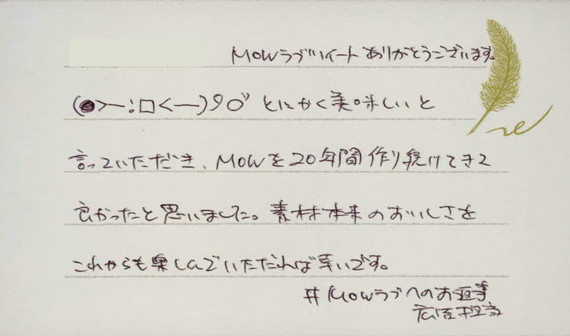 MOWラブツイートありがとうございます。
とにかく美味しいと
言っていただき、MOWを20年間作り続けてきて
良かったと思いました。素材本来のおいしさを
これからも楽しんでいただければ幸いです。
#MOWラブへのお返事
広告担当